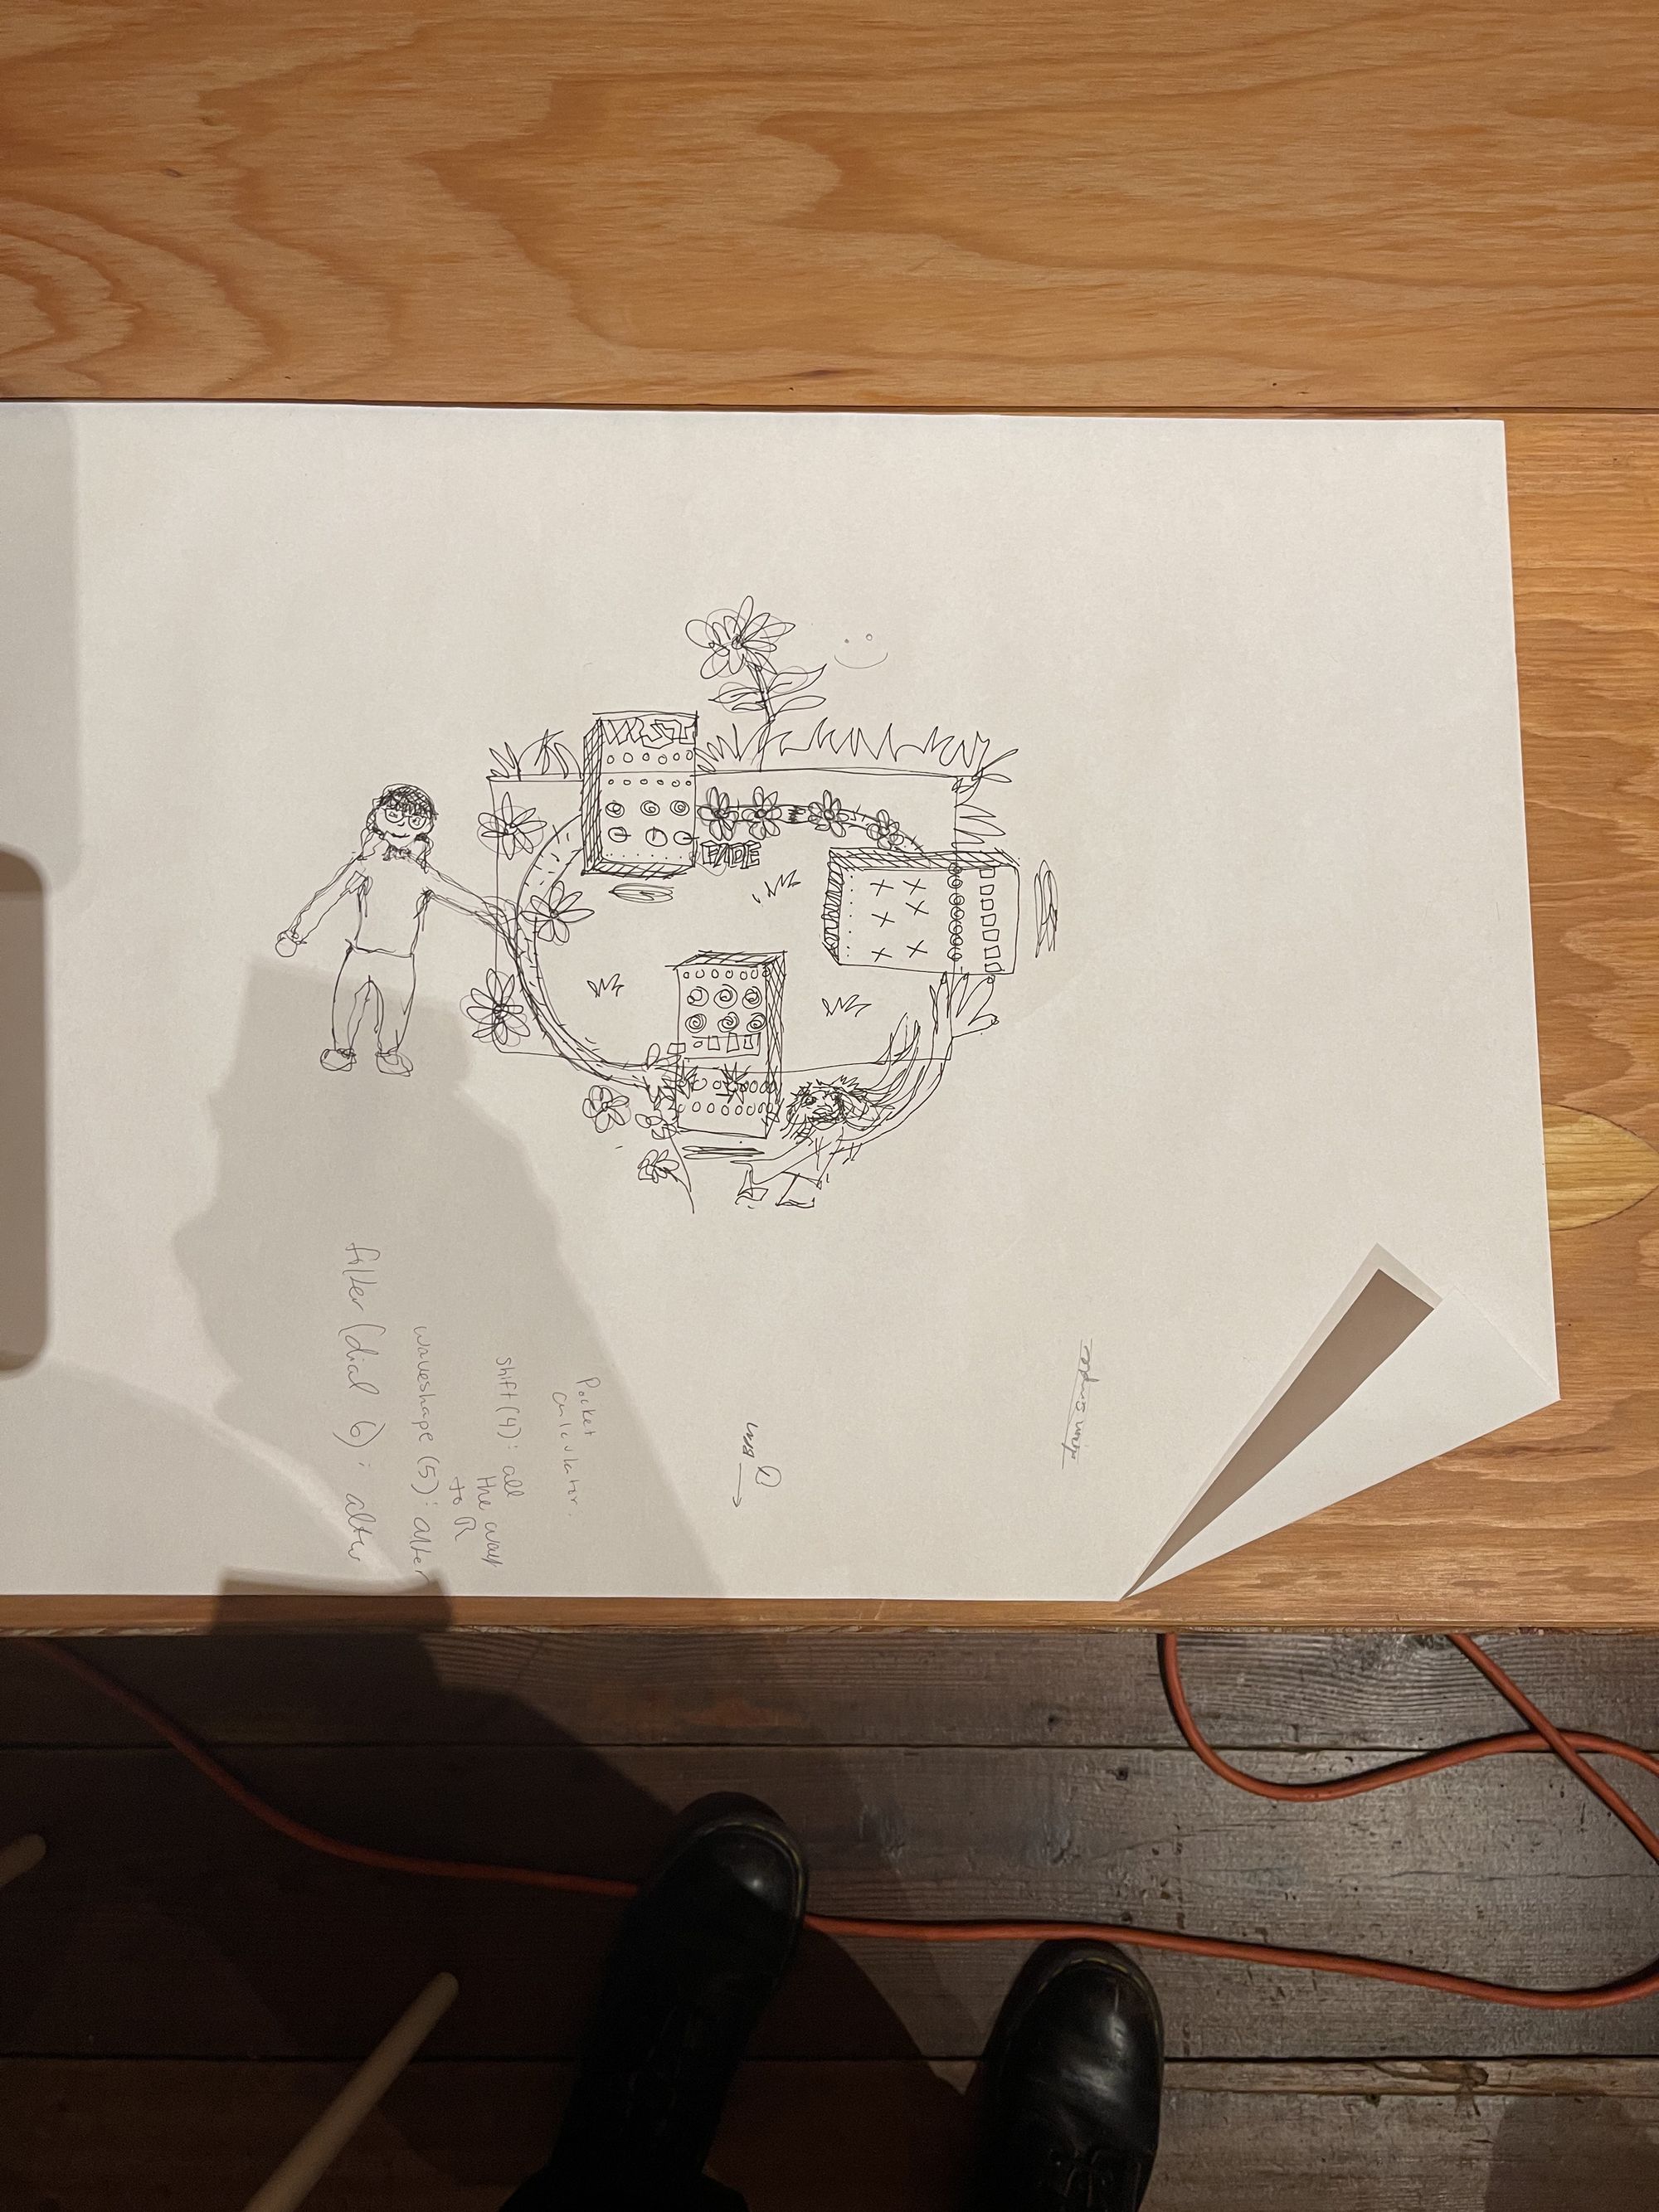 WIST
FADE
Pocket
calculator.
shift (4): all
the way
to R
waveshape (5): alter
filter (dial 6): alter